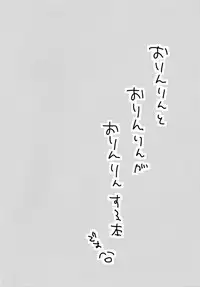 おりんりんと
おりんりんが
おりんりんする本
だよ